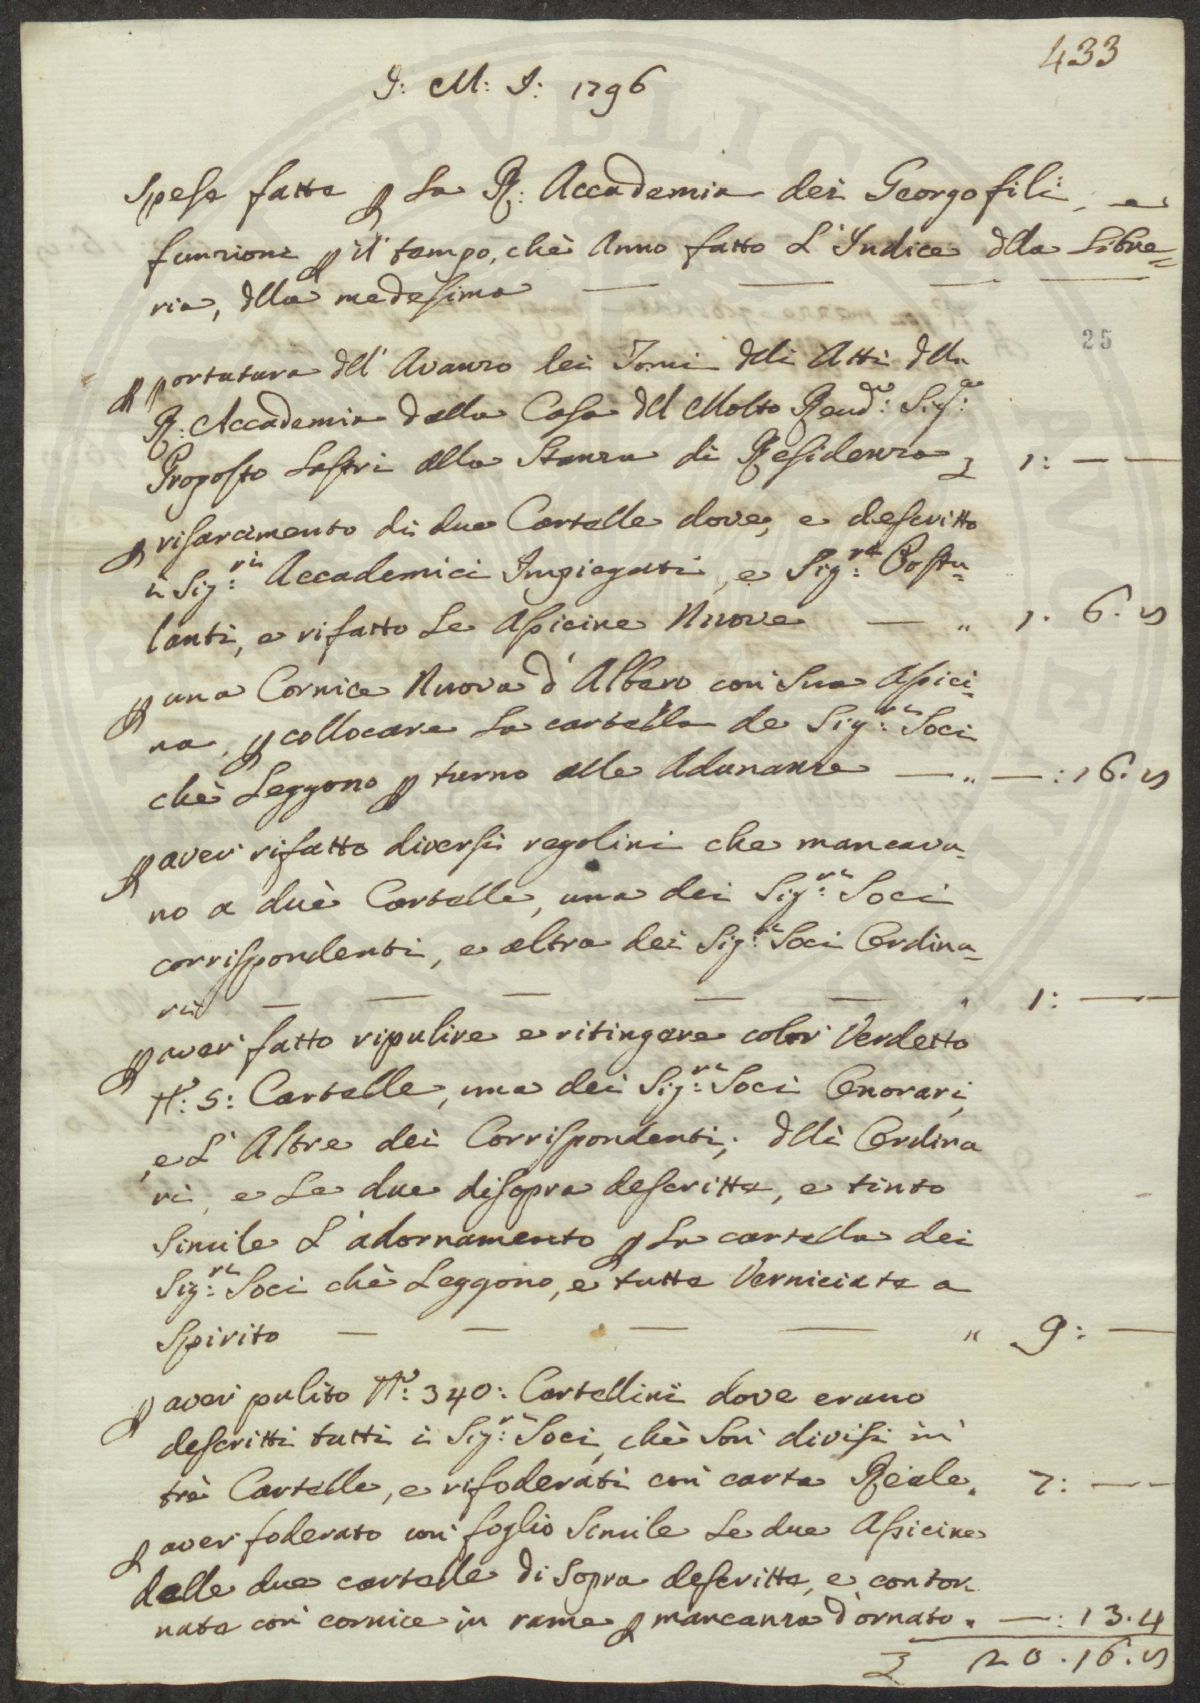 433
J: M: J: 1796
Spese fatte p la R: Accademia dei Georgofili, e
funzioni p il tempo, che Anno fatto L'Indice dlla Libre=
ria, dlla medesima
25
p portatura dll' Avanzo lei Tomi dlli Atti dlla
R: Accademia dalla Casa dll Molto Revdo: Sigr:
Proposto Lastri alla Stanza di Residenza £ 1: — —
p risarcimento di due Cartelle dove, e descritto
i Sigri: Accademici Impiegati, e Sigri: Postu=
lanti, e rifatto Le Assicine Nuove — " 1. 6. 8
p una Cornice Nuova d'Albero con Sua Assici=
na, p collocare La cartella de Sigri: Soci
chè Leggono p turno alle Adunanze — " — : 16. 8
p aver rifatto diversi regolini che mancava=
no a duè Cartelle, una dei Sigri: Soci
corrispondenti, e altra dei Sigri: Soci Ordina=
rii — — — — — " 1: — —
p aver fatto ripulire e ritingere color Verdetto
No: 5: Cartelle, una dei Sigri: Soci Onorari,
e L'Altre dei Corrispondenti; dlli Ordina
ri, e Le due disopra descritte, e tinto
Simile L'adornamento p La cartella dei
Sigri: Soci chè Leggono, e tutte Verniciate a
Spirito — — — — " 9: —
p aver pulito No: 340: Cartellini dove erano
descritti tutti i Sigri: Soci, chè Son divisi in
trè Cartelle, e rifoderati con carta Reale. 7: — —
p aver foderato con foglio Simile Le due Assicine
delle due cartelle di Sopra descritte, e contor=
nate con cornice in rame p mancanza d'ornato " — : 13. 4
£ 20. 16. 8